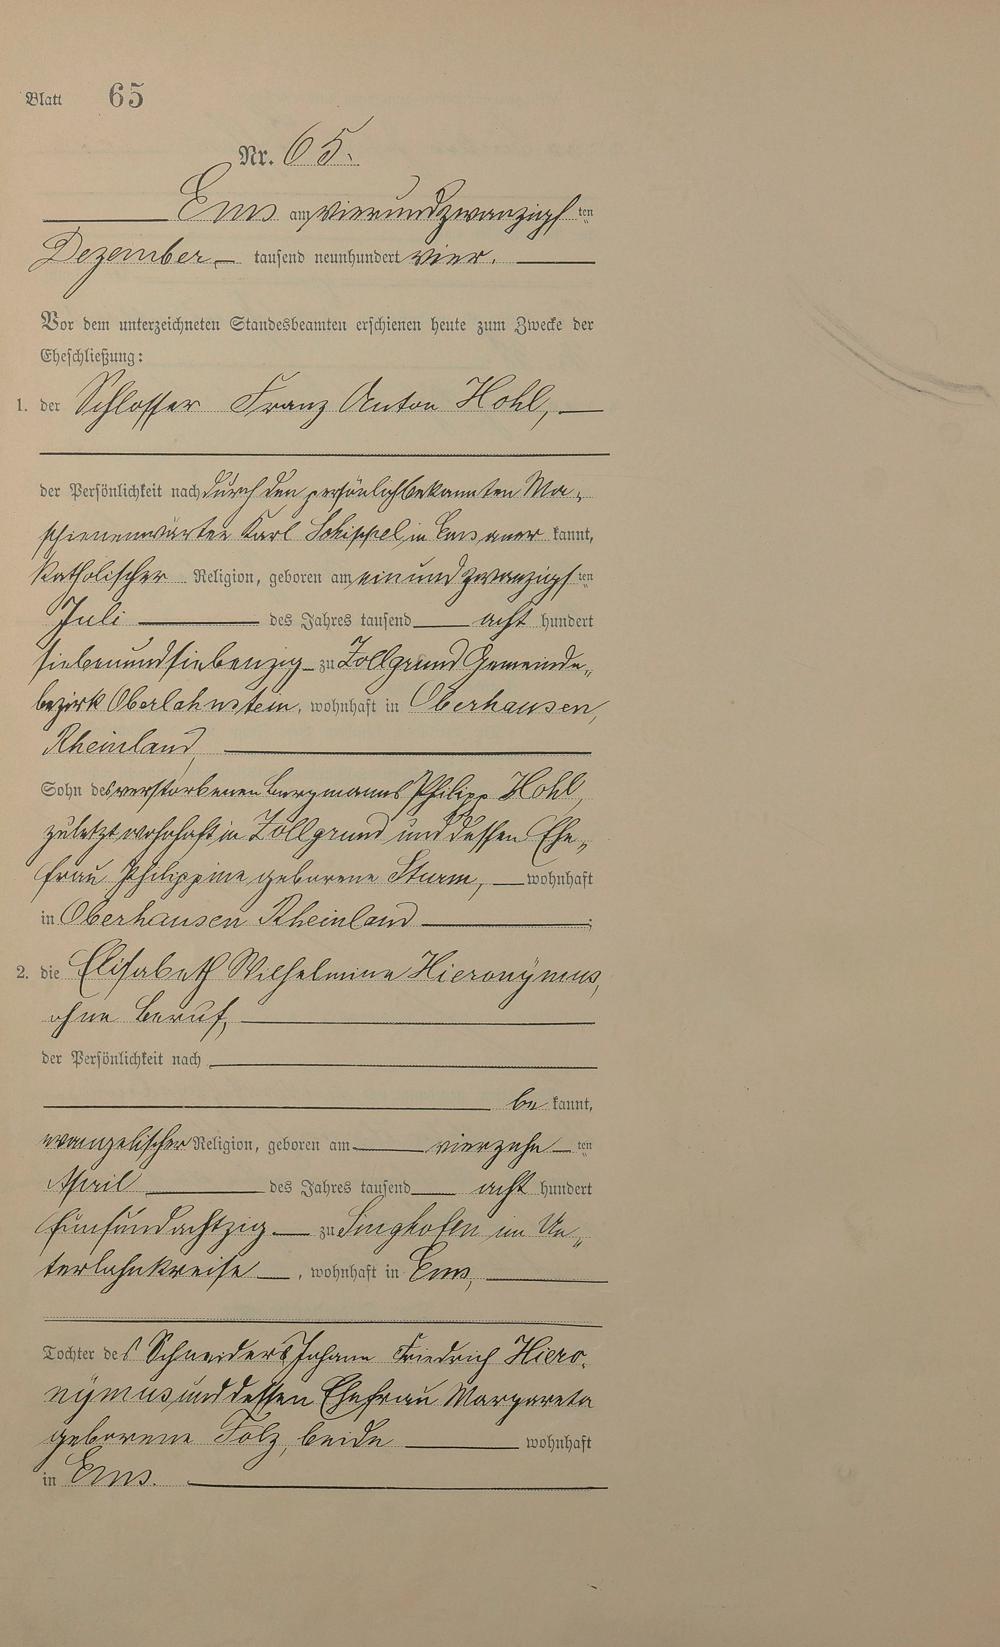 Blatt 65
Nr. 65.
Ems am vierundzwanzigsten
Dezember tausend neunhundert vier.
Vor dem unterzeichneten Standesbeamten erschienen heute zum Zwecke der
Eheschließung:
1. der Schlosser Franz Anton Hohl,
der Persönlichkeit nach durch den persönlich bekannten Ma-
schienenwärter Karl Schippel in Ems aner kannt,
katholischer Religion, geboren am einundzwanzigsten
Juli des Jahres tausend acht hundert
siebenundsiebenzig zu Zollgrund Gemeinde-
bezirk Oberlahnstein, wohnhaft in Oberhausen,
Rheinland,
Sohn des verstorbenen Bergmanns Philipp Hohl,
zuletzt wohnhaft in Zollgrund und dessen Ehe-
frau Philippine geborene Sturm, wohnhaft
in Oberhausen Rheinland ;
2. die Elisabeth Wilhelmine Hieronÿmus,
ohne Beruf,
der Persönlichkeit nach
be kannt,
evangelischer Religion, geboren am vierzehnten
April des Jahres tausend acht hundert
fünfundachtzig zu Singhofen im Un-
terlahnkreise, wohnhaft in Ems,
Tochter des Schneiders Johann Friedrich Hiero-
nÿmus und dessen Ehefrau Margareta
geborene Folz, beide wohnhaft
in Ems.